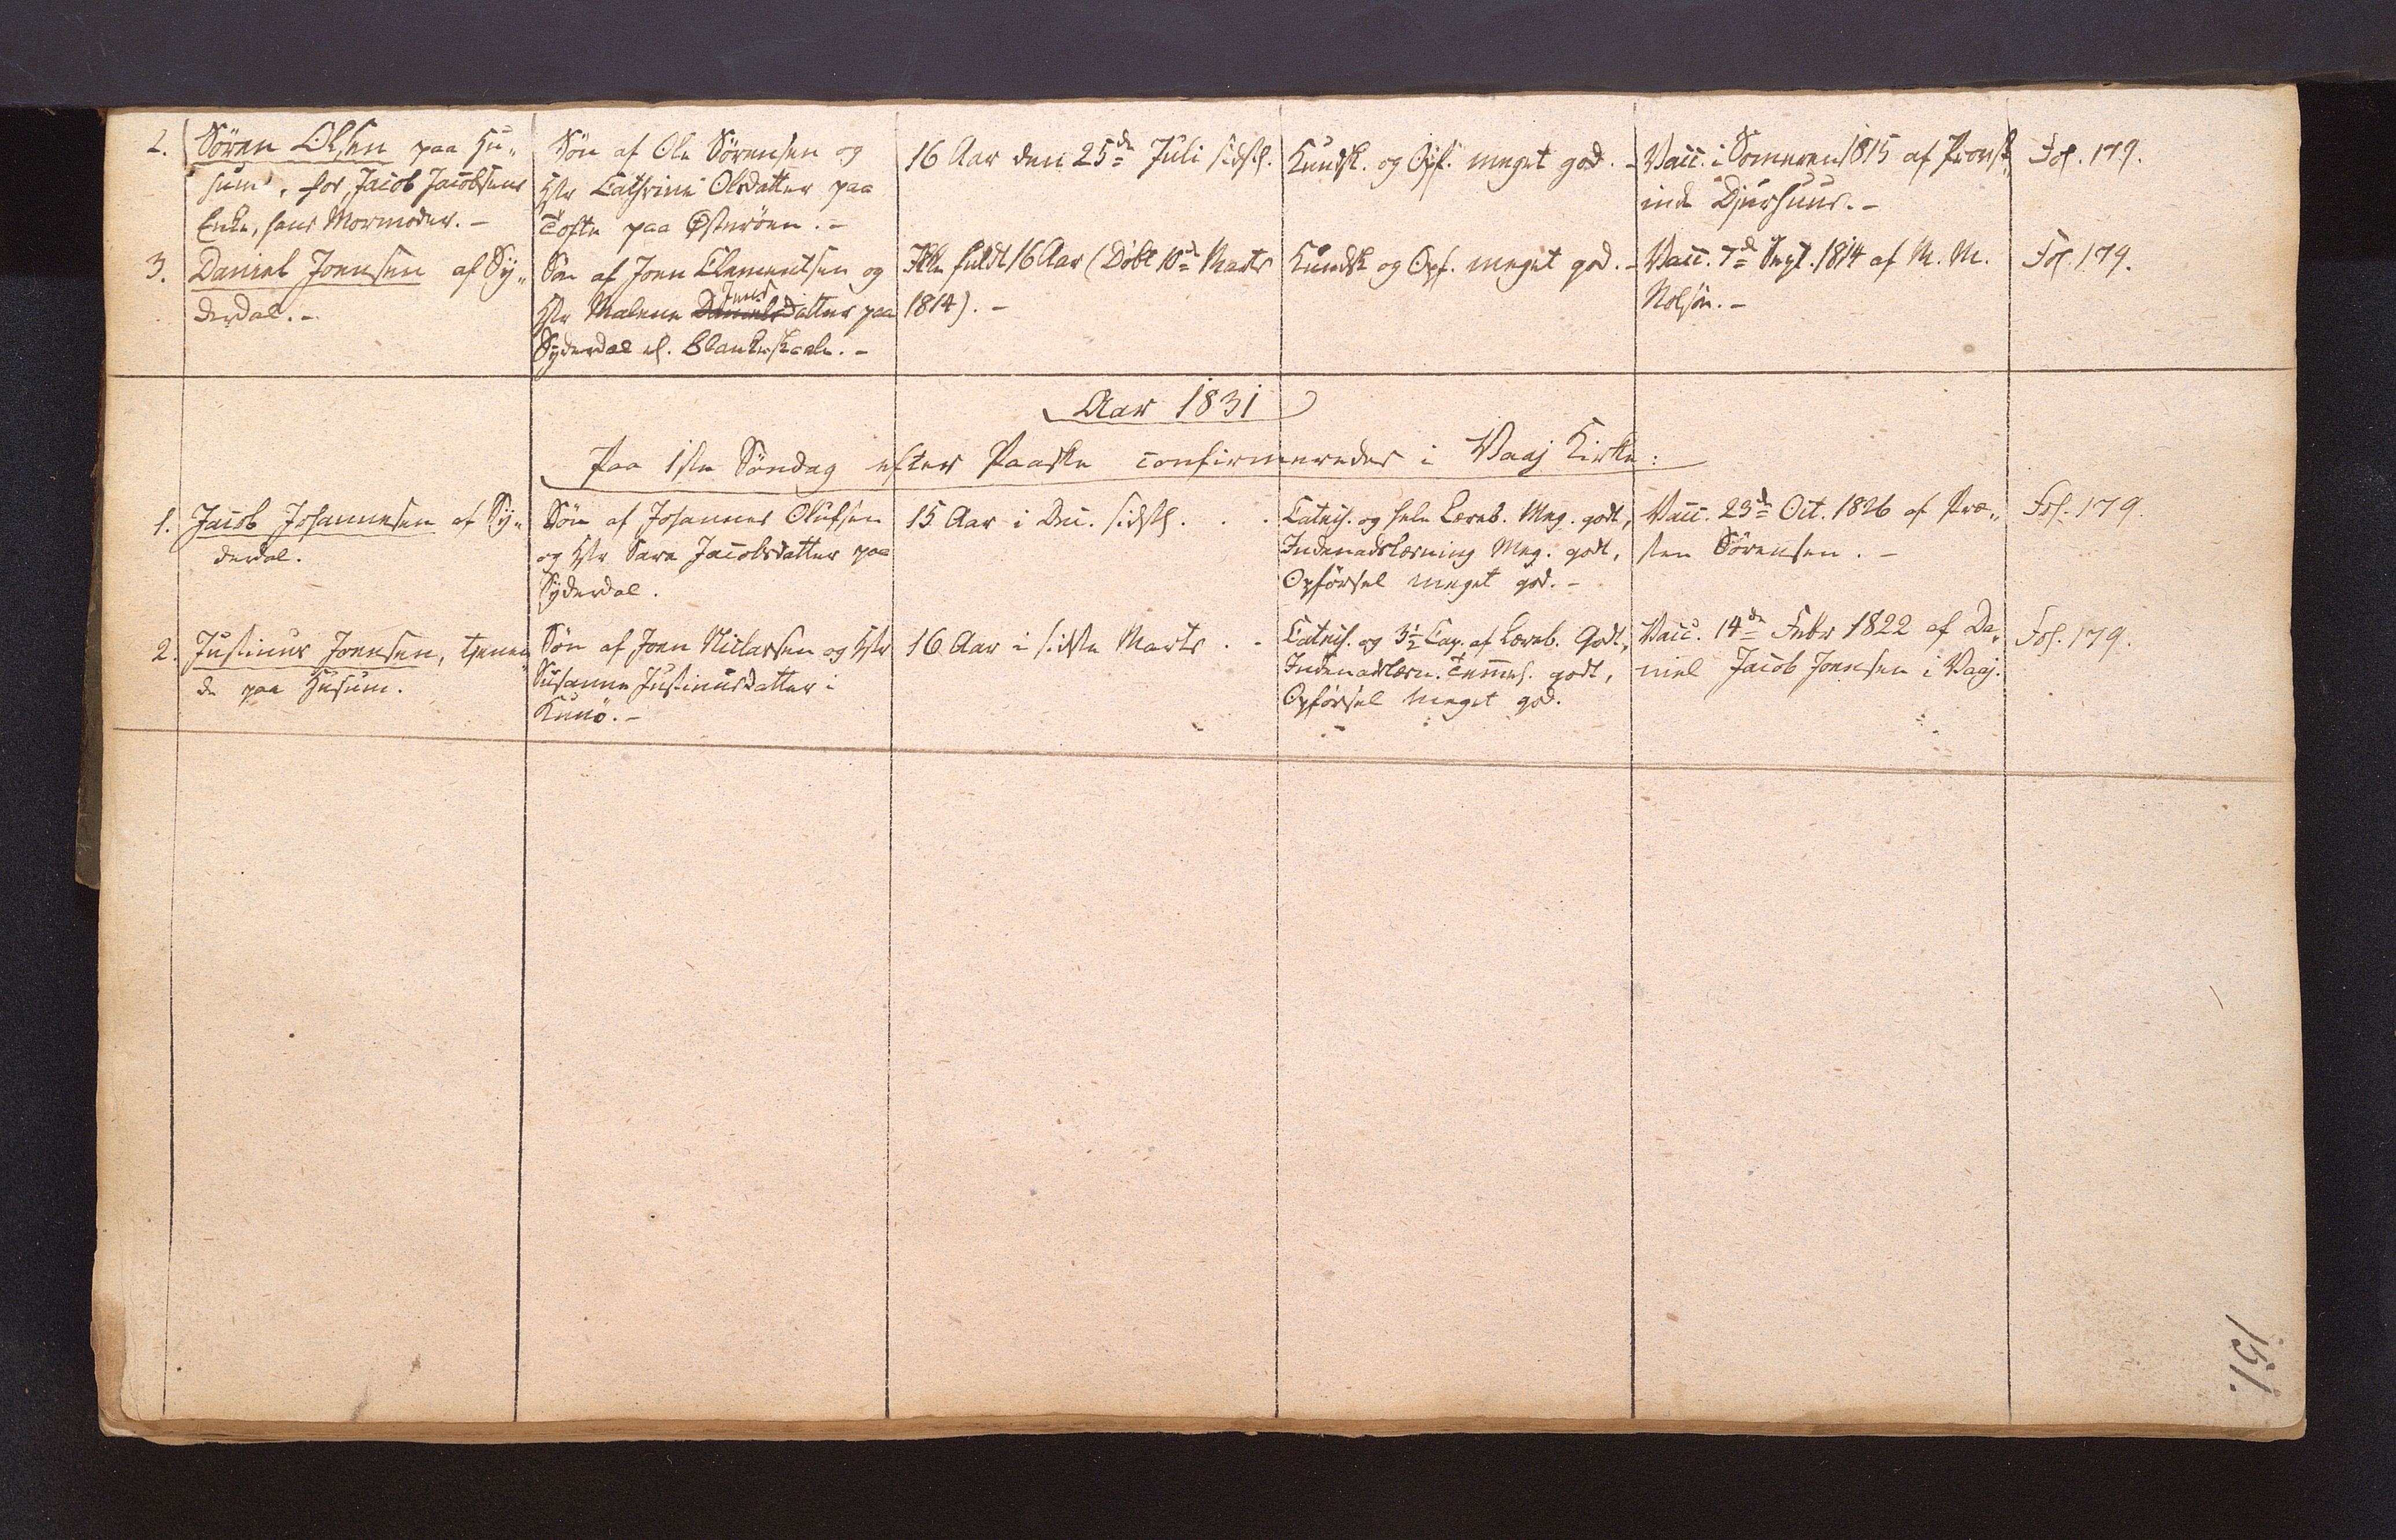 2. Sören Olsen paa Hu„
sum, hos Jacob Jacobsens
Enke, hans Mormoder. –
Søn af Ole Sörensen og
Hstr Cathrine Olsdatter paa
Tofte paa Østeröen. –
16 Aar den 25de Juli sidstl.
Kundsk. og Opf. meget god. –
Vacc. i Someren 1815 af Provst„
inde Djurhuus. –
Fol. 179.
3. Daniel Joensen af Sy„
derdal. –
Søn af Joen Clementsen og
Hstr Malene Daniels Jens datter paa
Syderdal
fuldt 16 Aar (Döbt 10de Marts
1814). –
Kundsk og Opf. meget god. –
Vacc. 7de Sept. 1814 af M. M.
Nolsöe. –
Fol. 179.
Aar 1831
Paa 1ste Söndag efter Paaske confirmeredes i Vaaj Kirke:
1. Jacob Johannesen af Sy„
derdal.
Søn af Johannes Olufsen
og Hstr Sara Jacobsdatter paa
Syderdal.
15 Aar i Dec. sidstl. . .
Catech. og hele Læreb. Meg. godt,
Indenadslæsning Meg. godt,
Opförsel meget god. –
Vacc. 23de Oct. 1826 af Præ„
sten Sörensen. –
Fol. 179.
2. Justinus Joensen, tjenen
de paa Husum.
Søn af Joen Niclassen og Hstr
Susanne Justinusdatter i
Kunö. –
16 Aar i sidste Marts . .
Catech. og 3½ Cap. af Læreb. Godt,
Indenadslæsn. Temel. godt,
Opförsel meget god.
Vacc. 14de Febr 1822 af Da„
niel Jacob Joensen i Vaaj.
Fol. 179.
151.